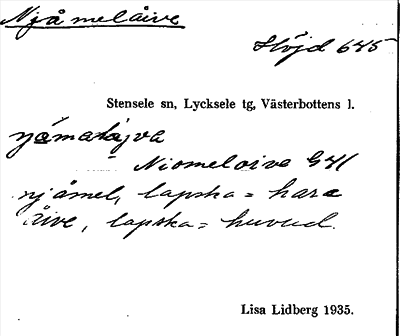 Njåmelåive
Höjd 645
Stensele sn, Lycksele tg, Västerbottens l.
Niomeloive G41
njåmel, lapska = hare
åive, lapska = huvud.
Lisa Lidberg 1935.